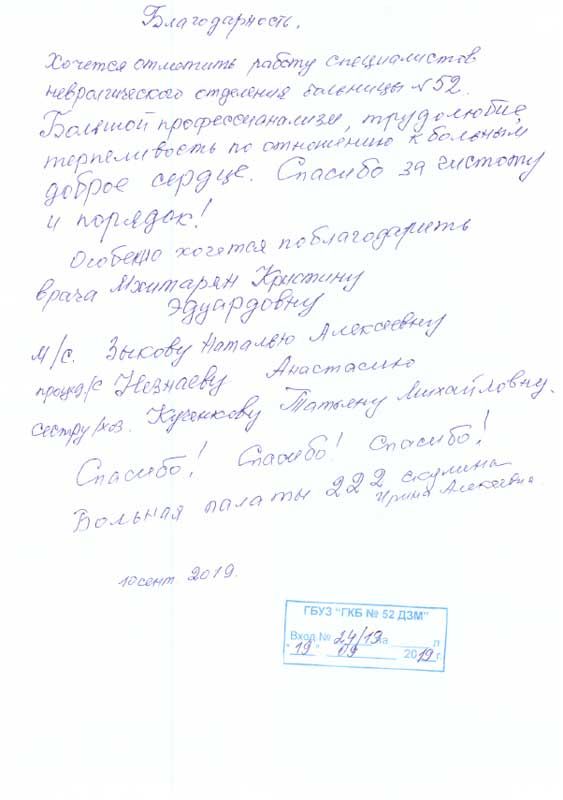 Благодарность.
Хочется отметить работу специалистов
неврологического отделения больницы №52.
Большой профессионализм, трудолюбие,
терпеливость по отношению к больным,
доброе сердце. Спасибо за чистоту
и порядок!
Особенно хочется поблагодарить
врача Мхитарян Кристину
Эдуардовну
м/с. Зыкову Наталью Алексеевну
процед/с Незнаеву Анастасию
сестру/хоз. Кусенкову Татьяну Михайловну.
Спасибо! Спасибо! Спасибо!
Больная палаты 222 Скулина
Ирина Алексеевна.
10 сент 2019.
ГБУЗ "ГКБ № 52 ДЗМ"
Вход № 24/19 на ___ л
"19" 09 2019 г.